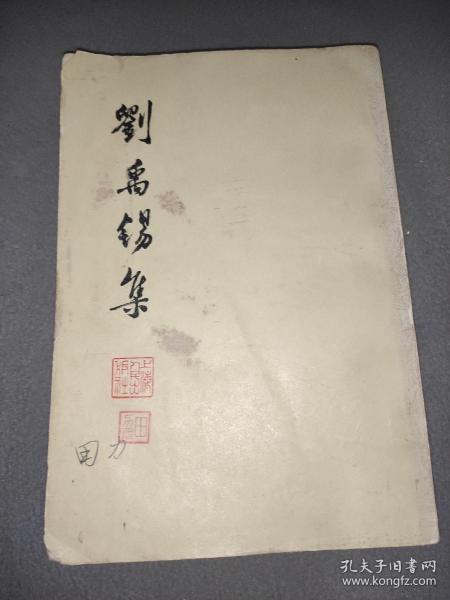 劉禹錫集
上海
人民出
版社
田力
孔夫子旧书网
www.kongfz.com